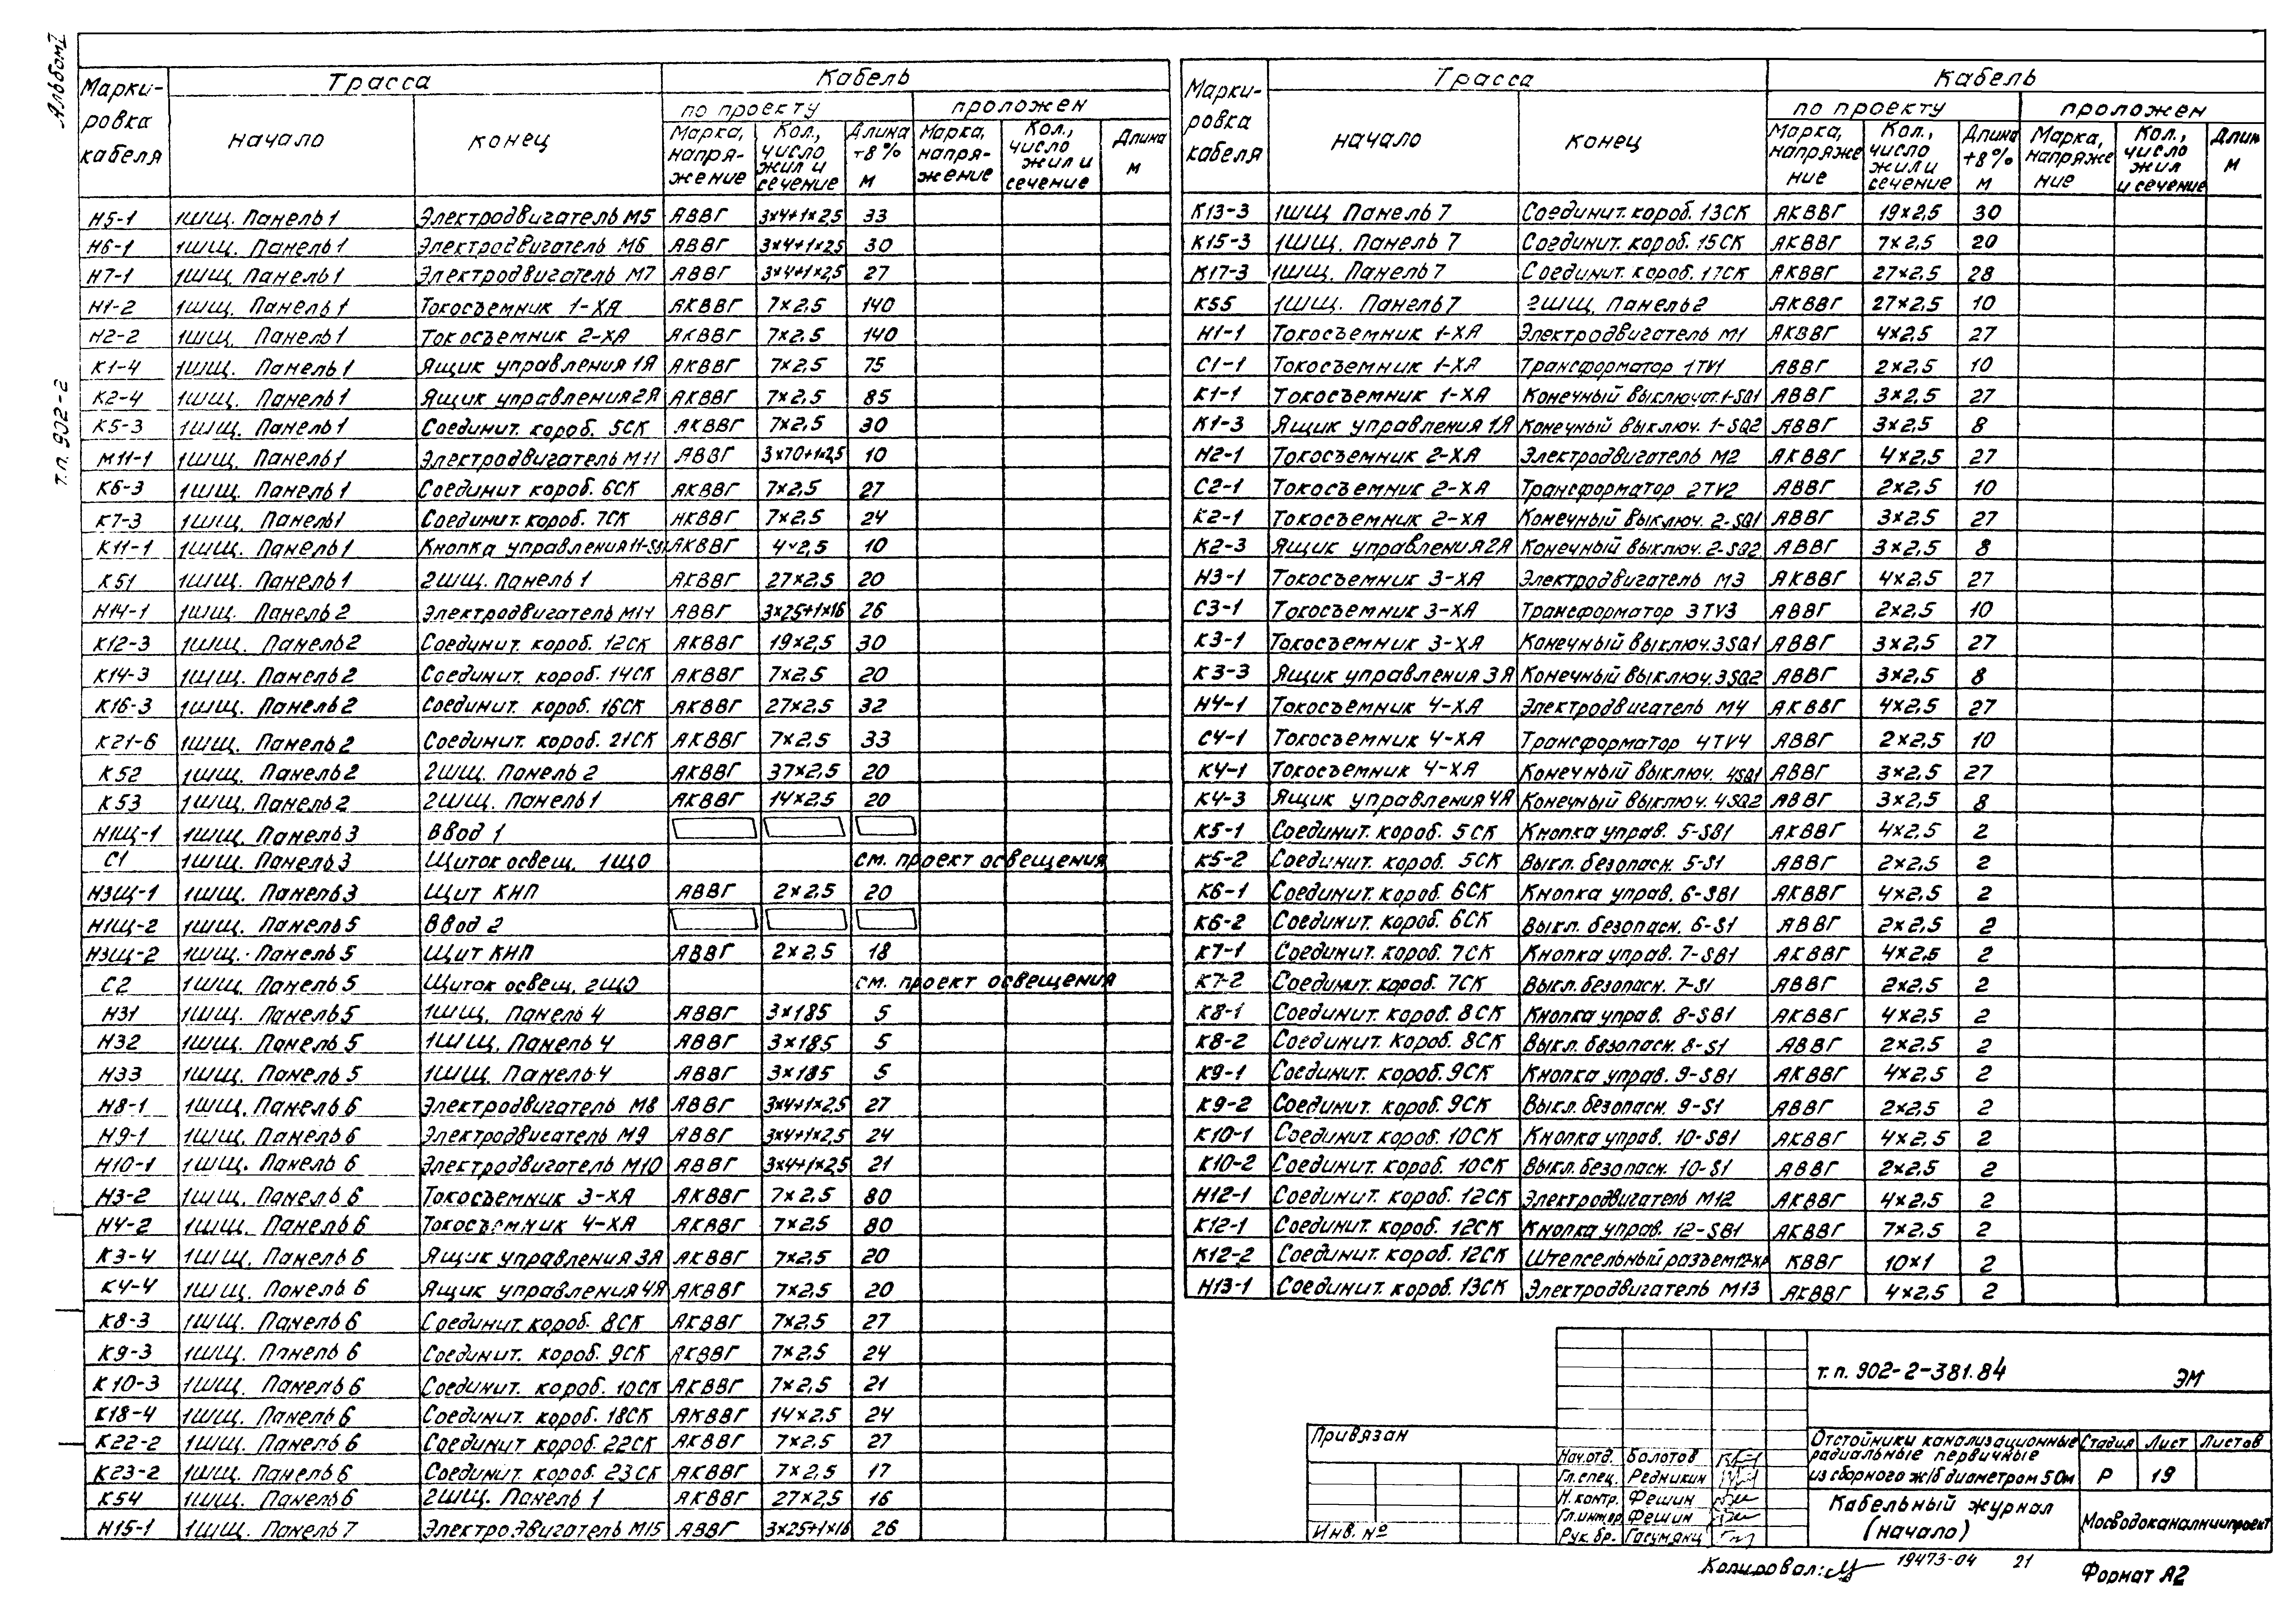 Альбом I
т.п. 902-2
Марки-ровка кабеля Трасса Кабель
начало конец по проекту проложен
Марка, напря-жение Кол., число жил и сечение Длина +8% м Марка, напря-жение Кол., число жил и сечение Длина м
Н5-1 1ШЩ. Панель 1 Электродвигатель М5 АВВГ 3×4+1×2,5 33
Н6-1 1ШЩ. Панель 1 Электродвигатель М6 АВВГ 3×4+1×2,5 30
Н7-1 1ШЩ. Панель 1 Электродвигатель М7 АВВГ 3×4+1×2,5 27
Н1-2 1ШЩ. Панель 1 Токосъемник 1-ХА АКВВГ 7×2,5 140
Н2-2 1ШЩ. Панель 1 Токосъемник 2-ХА АКВВГ 7×2,5 140
К1-4 1ШЩ. Панель 1 Ящик управления 1Я АКВВГ 7×2,5 75
К2-4 1ШЩ. Панель 1 Ящик управления 2Я АКВВГ 7×2,5 85
К5-3 1ШЩ. Панель 1 Соединит. короб. 5СК АКВВГ 7×2,5 30
М11-1 1ШЩ. Панель 1 Электродвигатель М11 АВВГ 3×70+1×2,5 10
К6-3 1ШЩ. Панель 1 Соединит короб. 6СК АКВВГ 7×2,5 27
К7-3 1ШЩ. Панель 1 Соединит. короб. 7СК АКВВГ 7×2,5 24
К11-1 1ШЩ. Панель 1 Кнопка управления 11-SB1 АКВВГ 4×2,5 10
К51 1ШЩ. Панель 1 2ШЩ. Панель 1 АКВВГ 27×2,5 20
Н14-1 1ШЩ. Панель 2 Электродвигатель М14 АВВГ 3×25+1×16 26
К12-3 1ШЩ. Панель 2 Соединит. короб. 12СК АКВВГ 19×2,5 30
К14-3 1ШЩ. Панель 2 Соединит. короб. 14СК АКВВГ 7×2,5 20
К16-3 1ШЩ. Панель 2 Соединит. короб. 16СК АКВВГ 27×2,5 32
К21-6 1ШЩ. Панель 2 Соединит. короб. 21СК АКВВГ 7×2,5 33
К52 1ШЩ. Панель 2 2ШЩ. Панель 2 АКВВГ 37×2,5 20
К53 1ШЩ. Панель 2 2ШЩ. Панель 1 АКВВГ 14×2,5 20
Н1Щ-1 1ШЩ. Панель 3 Ввод 1
С1 1ШЩ. Панель 3 Щиток освещ. 1ЩО см. проект освещения
Н3Щ-1 1ШЩ. Панель 3 Щит КНП АВВГ 2×2,5 20
Н1Щ-2 1ШЩ. Панель 5 Ввод 2
Н3Щ-2 1ШЩ. Панель 5 Щит КНП АВВГ 2×2,5 18
С2 1ШЩ. Панель 5 Щиток освещ. 2ЩО см. проект освещения
Н31 1ШЩ. Панель 5 1ШЩ. Панель 4 АВВГ 3×185 5
Н32 1ШЩ. Панель 5 1ШЩ. Панель 4 АВВГ 3×185 5
Н33 1ШЩ. Панель 5 1ШЩ. Панель 4 АВВГ 3×185 5
Н8-1 1ШЩ. Панель 6 Электродвигатель М8 АВВГ 3×4+1×2,5 27
Н9-1 1ШЩ. Панель 6 Электродвигатель М9 АВВГ 3×4+1×2,5 24
Н10-1 1ШЩ. Панель 6 Электродвигатель М10 АВВГ 3×4+1×2,5 21
Н3-2 1ШЩ. Панель 6 Токосъемник 3-ХА АКВВГ 7×2,5 80
Н4-2 1ШЩ. Панель 6 Токосъемник 4-ХА АКВВГ 7×2,5 80
К3-4 1ШЩ. Панель 6 Ящик управления 3Я АКВВГ 7×2,5 20
К4-4 1ШЩ. Панель 6 Ящик управления 4Я АКВВГ 7×2,5 20
К8-3 1ШЩ. Панель 6 Соединит. короб. 8СК АКВВГ 7×2,5 27
К9-3 1ШЩ. Панель 6 Соединит. короб. 9СК АКВВГ 7×2,5 24
К10-3 1ШЩ. Панель 6 Соединит. короб. 10СК АКВВГ 7×2,5 21
К18-4 1ШЩ. Панель 6 Соединит. короб. 18СК АКВВГ 14×2,5 24
К22-2 1ШЩ. Панель 6 Соединит. короб. 22СК АКВВГ 7×2,5 27
К23-2 1ШЩ. Панель 6 Соединит. короб. 23СК АКВВГ 7×2,5 17
К54 1ШЩ. Панель 6 2ШЩ. Панель 1 АКВВГ 27×2,5 16
Н15-1 1ШЩ. Панель 7 Электродвигатель М15 АВВГ 3×25+1×16 26
Марки-ровка кабеля Трасса Кабель
начало конец по проекту проложен
Марка, напряжение Кол., число жил и сечение Длина +8% м Марка, напряжение Кол., число жил и сечение Длин м
К13-3 1ШЩ Панель 7 Соединит. короб. 13СК АКВВГ 19×2,5 30
К15-3 1ШЩ. Панель 7 Соединит. короб. 15СК АКВВГ 7×2,5 20
К17-3 1ШЩ. Панель 7 Соединит. короб. 17СК АКВВГ 27×2,5 28
К55 1ШЩ. Панель 7 2ШЩ. Панель 2 АКВВГ 27×2,5 10
Н1-1 Токосъемник 1-ХА Электродвигатель М1 АКВВГ 4×2,5 27
С1-1 Токосъемник 1-ХА Трансформатор 1TV1 АВВГ 2×2,5 10
К1-1 Токосъемник 1-ХА Конечный выключат. 1-SQ1 АВВГ 3×2,5 27
К1-3 Ящик управления 1Я Конечный выключ. 1-SQ2 АВВГ 3×2,5 8
Н2-1 Токосъемник 2-ХА Электродвигатель М2 АКВВГ 4×2,5 27
С2-1 Токосъемник 2-ХА Трансформатор 2TV2 АВВГ 2×2,5 10
К2-1 Токосъемник 2-ХА Конечный выключ. 2-SQ1 АВВГ 3×2,5 27
К2-3 Ящик управления 2Я Конечный выключ. 2-SQ2 АВВГ 3×2,5 8
Н3-1 Токосъемник 3-ХА Электродвигатель М3 АКВВГ 4×2,5 27
С3-1 Токосъемник 3-ХА Трансформатор 3TV3 АВВГ 2×2,5 10
К3-1 Токосъемник 3-ХА Конечный выключ. 3SQ1 АВВГ 3×2,5 27
К3-3 Ящик управления 3Я Конечный выключ. 3SQ2 АВВГ 3×2,5 8
Н4-1 Токосъемник 4-ХА Электродвигатель М4 АКВВГ 4×2,5 27
С4-1 Токосъемник 4-ХА Трансформатор 4TV4 АВВГ 2×2,5 10
К4-1 Токосъемник 4-ХА Конечный выключ. 4SQ1 АВВГ 3×2,5 27
К4-3 Ящик управления 4Я Конечный выключ. 4SQ2 АВВГ 3×2,5 8
К5-1 Соединит. короб. 5СК Кнопка управ. 5-SB1 АКВВГ 4×2,5 2
К5-2 Соединит. короб. 5СК Выкл. безопасн. 5-S1 АВВГ 2×2,5 2
К6-1 Соединит. короб. 6СК Кнопка управ. 6-SB1 АКВВГ 4×2,5 2
К6-2 Соединит. короб. 6СК Выкл. безопасн. 6-S1 АВВГ 2×2,5 2
К7-1 Соединит. короб. 7СК Кнопка управ. 7-SB1 АКВВГ 4×2,5 2
К7-2 Соединит. короб. 7СК Выкл. безопасн. 7-S1 АВВГ 2×2,5 2
К8-1 Соединит. короб. 8СК Кнопка управ. 8-SB1 АКВВГ 4×2,5 2
К8-2 Соединит. короб. 8СК Выкл. безопасн. 8-S1 АВВГ 2×2,5 2
К9-1 Соединит. короб. 9СК Кнопка управ. 9-SB1 АКВВГ 4×2,5 2
К9-2 Соединит. короб. 9СК Выкл. безопасн. 9-S1 АВВГ 2×2,5 2
К10-1 Соединит короб. 10СК Кнопка управ. 10-SB1 АКВВГ 4×2,5 2
К10-2 Соединит. короб. 10СК Выкл. безопасн. 10-S1 АВВГ 2×2,5 2
Н12-1 Соединит. короб. 12СК Электродвигатель М12 АКВВГ 4×2,5 2
К12-1 Соединит. короб. 12СК Кнопка управ. 12-SB1 АКВВГ 7×2,5 2
К12-2 Соединит. короб. 12СК Штепсельный разъем 12-ХР КВВГ 10×1 2
Н13-1 Соединит. короб. 13СК Электродвигатель М13 АКВВГ 4×2,5 2
т.п. 902-2-381.84 ЭМ
Привязан
Инв. №
Нач.отд. Болотов
Гл.спец. Редникин
Н.контр. Фешин
Гл.инжпр Фешин
Рук.бр. Гасумянц
Отстойники канализационные радиальные первичные из сборного ж/б диаметром 50м
Стадия Лист Листов
Р 19
Кабельный журнал (начало)
Мосводоканалниипроект
Копировал: 19473-04 21 Формат А2